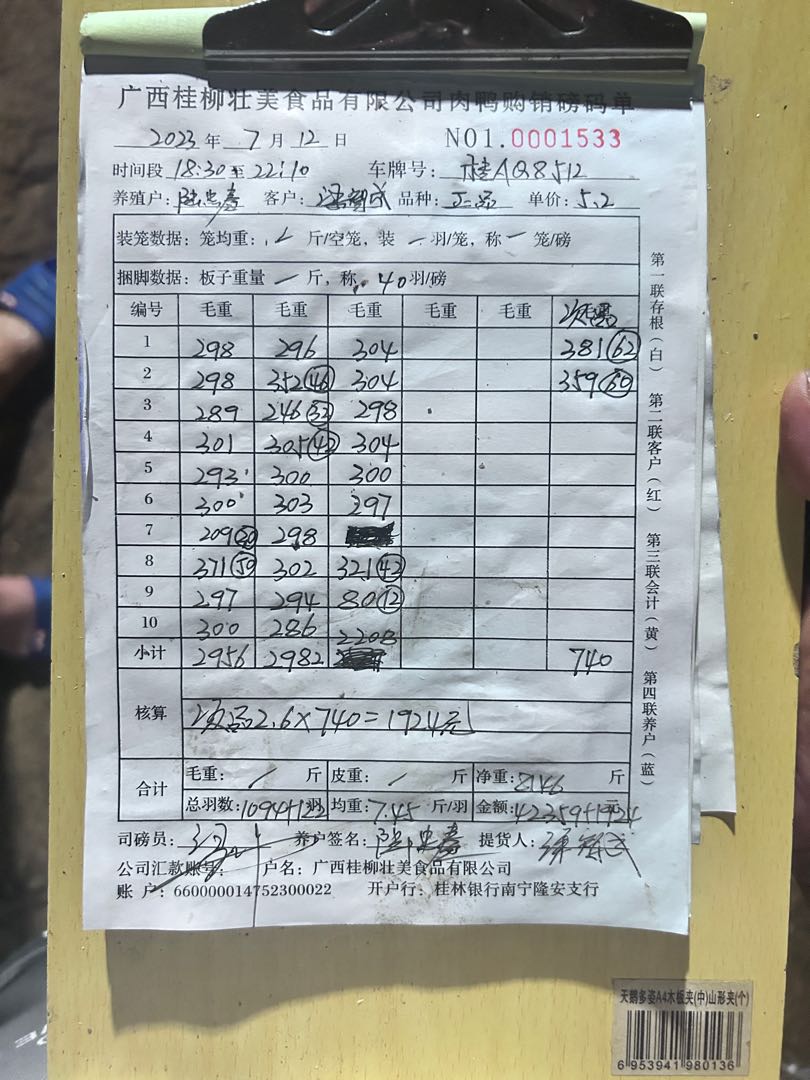 广西桂柳壮美食品有限公司肉鸭购销磅码单
2023 年 7 月 12 日 NO1.0001533
时间段 18:30至22:10 车牌号: 桂AQ8512
养殖户: 客户: 品种: 正品 单价: 5.2
装笼数据: 笼均重: 斤/空笼, 装 一 羽/笼, 称 一 笼/磅
捆脚数据: 板子重量 一 斤, 称 40 羽/磅
编号 毛重 毛重 毛重 毛重 毛重 次品
1 298 296 304 381(62)
2 298 352(46) 304 359(60)
3 289 246(32) 298
4 301 305(42) 304
5 293 300 300
6 300 303 297
7 209(30) 298
8 371(50) 302 321(42)
9 297 294 80(12)
10 300 286 2208
小计 2956 2982 740
核算 次品2.6×740=1924元
合计 毛重: / 斤 皮重: / 斤 净重: 8146 斤
总羽数: 1094+122 羽 均重: 7.45 斤/羽 金额: 42359+1924
司磅员: 养户签名: 提货人:
公司汇款账号: 户名: 广西桂柳壮美食品有限公司
账 户: 660000014752300022 开户行: 桂林银行南宁隆安支行
第一联存根(白) 第二联客户(红) 第三联会计(黄) 第四联养户(蓝)
天鹅多姿A4木板夹(中)山形夹(个)
6 953941 980136